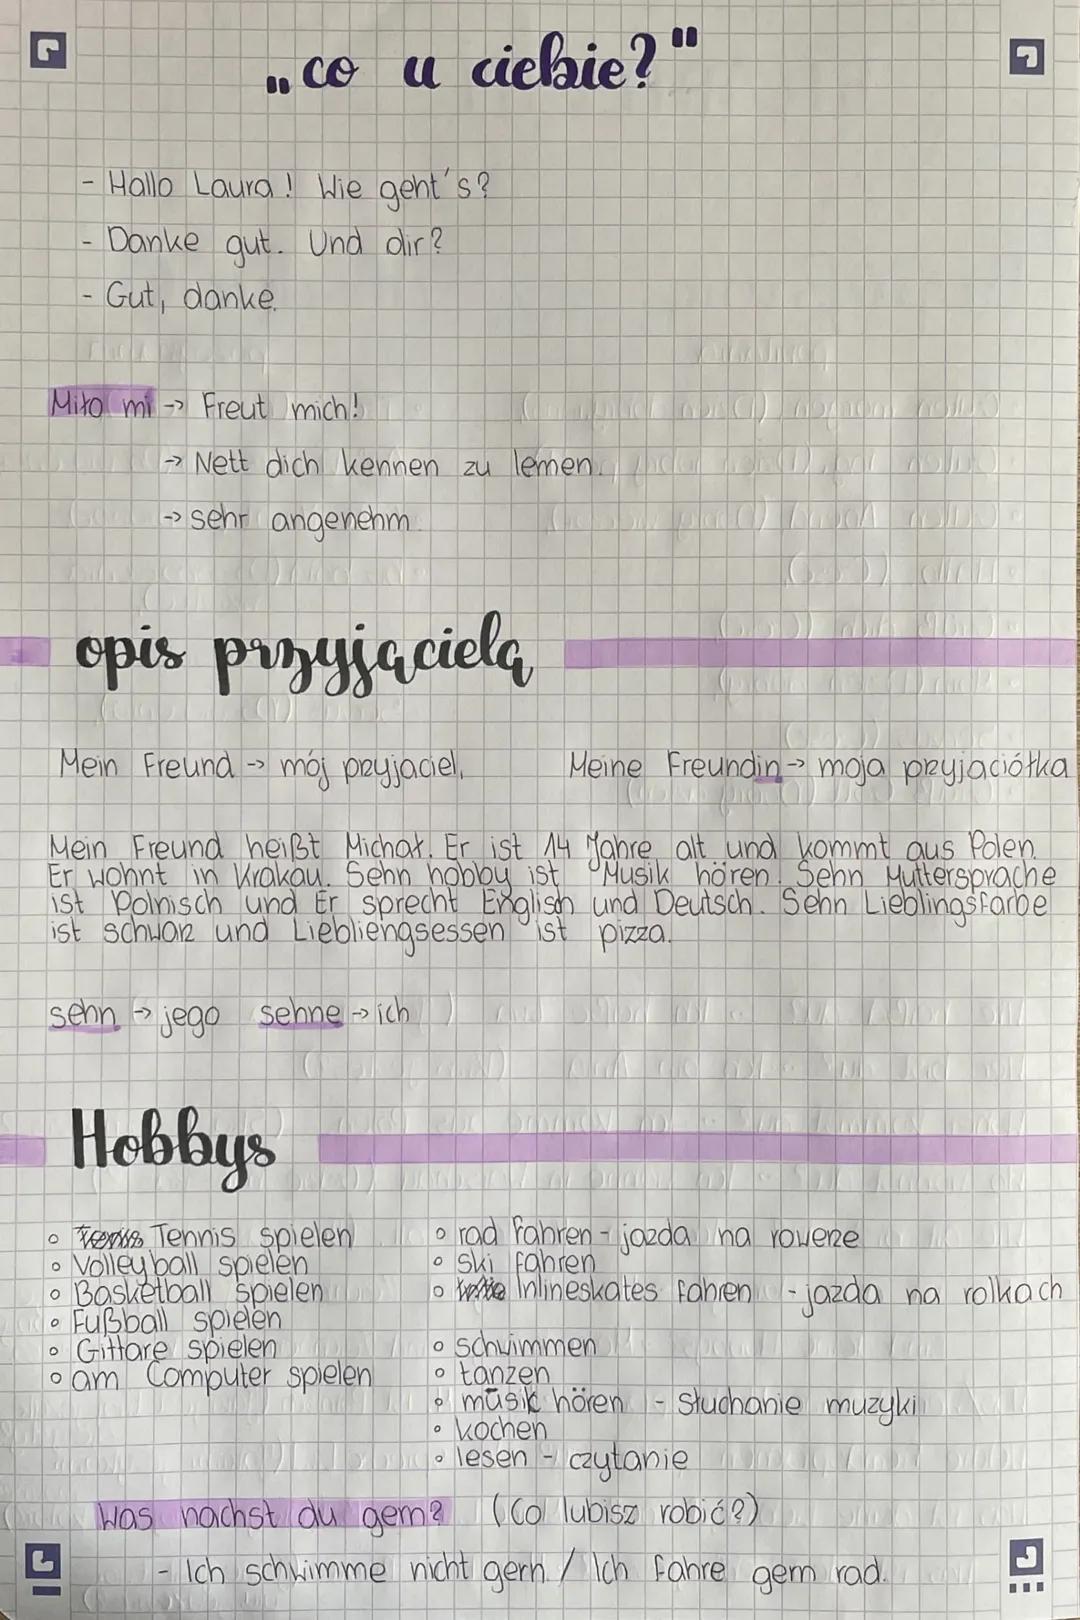 „co u ciebie?"
- Hallo Laura! Wie geht's?
- Danke gut. Und dir?
- Gut, danke.
Miło mi → Freut mich!
→ Nett dich kennen zu lernen.
→ sehr angenehm.
opis przyjącielą
Mein Freund → mój pzyjaciel,
Meine Freundin → moja pzyjaciółka
Mein Freund heißt Michał. Er ist 14 Jahre alt und kommt aus Polen.
Er wohnt in Krakau. Sehn hobby ist Musik hören. Sehn Muttersprache
ist Polnisch und Er sprecht English und Deutsch. Sehn Lieblingsfarbe
ist schwarz und Liebliengsessen ist pizza.
sehn → jego sehne → ich
Hobbys
◦ Tennis spielen
◦ Volleyball spielen
◦ Basketball spielen
◦ Fußball spielen
◦ Gittare spielen
◦ am Computer spielen
◦ rad fahren - jazda na roweze
◦ ski fahren
◦ Inlineskates fahren - jazda na rolkach
◦ schwimmen
◦ tanzen
◦ musik hören - słuchanie muzyki
◦ kochen
◦ lesen - czytanie
Was nachst du gern? (Co lubisz robić?)
- Ich schwimme nicht gern. / Ich fahre gern rad.